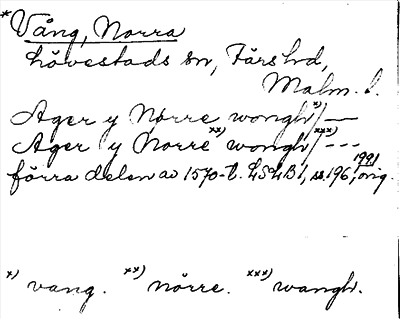 *Vång, Norra
Lövestads sn, Färs hd,
Malm. l.
Ager y Nörre wongh x)/—
Ager y Norre xx) wongh xxx)/---
förra delen av 1570-t. LSLB1, s. 196, 199, orig.
x) vang. xx) nörre. xxx) wangh.